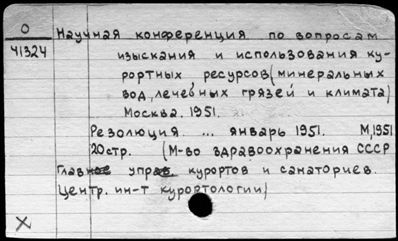 О
41324
Научная конференция по вопросам
изыскания и использования ку-
рортных ресурсов (минеральных
вод, лечебных грязей и климата)
Москва. 1951.
Резолюция ... январь 1951. М, 1951
20стр. (М-во здравоохранения СССР
Главное управ. курортов и санаториев.
Центр. ин-т курортологии)
X